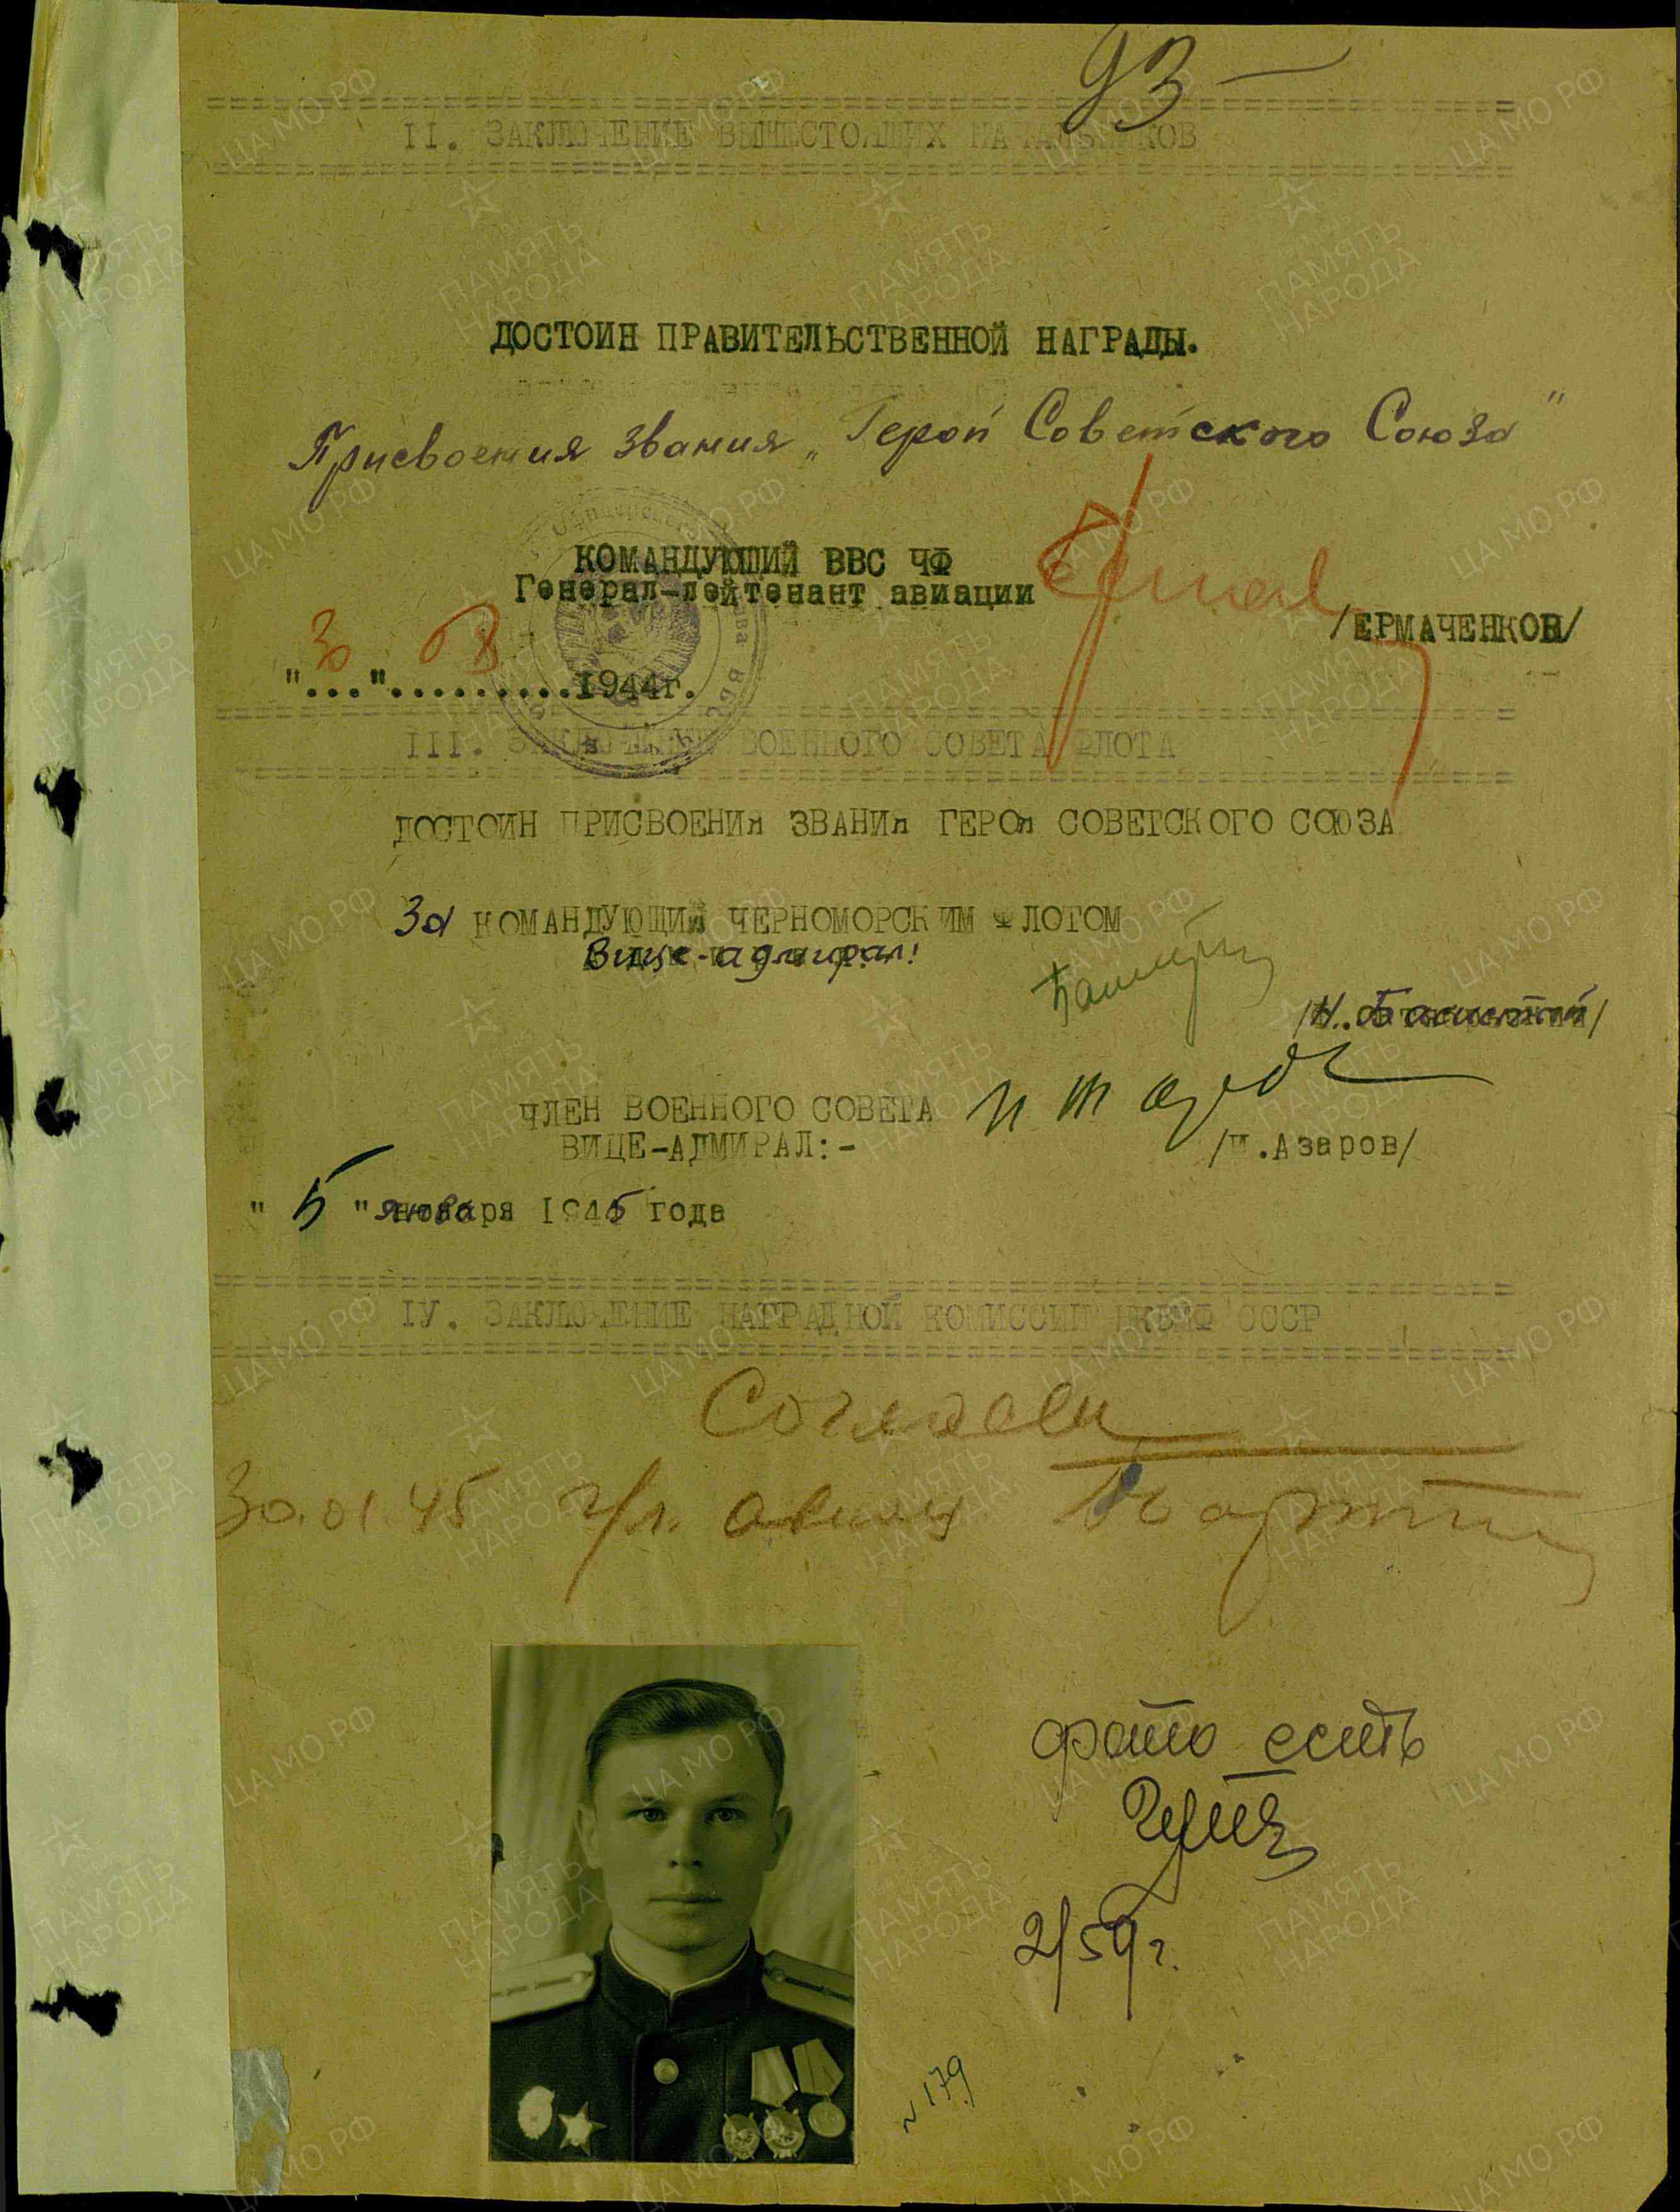 93 —
II. ЗАКЛЮЧЕНИЕ ВЫШЕСТОЯЩИХ НАЧАЛЬНИКОВ
ДОСТОИН ПРАВИТЕЛЬСТВЕННОЙ НАГРАДЫ.
Присвоения звания „Герой Советского Союза"
КОМАНДУЮЩИЙ ВВС ЧФ
Генерал-лейтенант авиации
/ЕРМАЧЕНКОВ/
"3" 1944г.
III. ЗАКЛЮЧЕНИЕ ВОЕННОГО СОВЕТА ФЛОТА
ДОСТОИН ПРИСВОЕНИЯ ЗВАНИЯ ГЕРОЯ СОВЕТСКОГО СОЮЗА
За КОМАНДУЮЩИЙ ЧЕРНОМОРСКИМ ФЛОТОМ
Вице-адмирал:
/Н. Басистый/
ЧЛЕН ВОЕННОГО СОВЕТА
ВИЦЕ-АДМИРАЛ:-
/И.Азаров/
"5" января 1945 года
IУ. ЗАКЛЮЧЕНИЕ НАГРАДНОЙ КОМИССИИ НКВМФ СССР
Согласен
30.01.45 г/л. авиац
фото есть
2/59г.
N 179
ЦА МО РФ
ПАМЯТЬ
НАРОДА